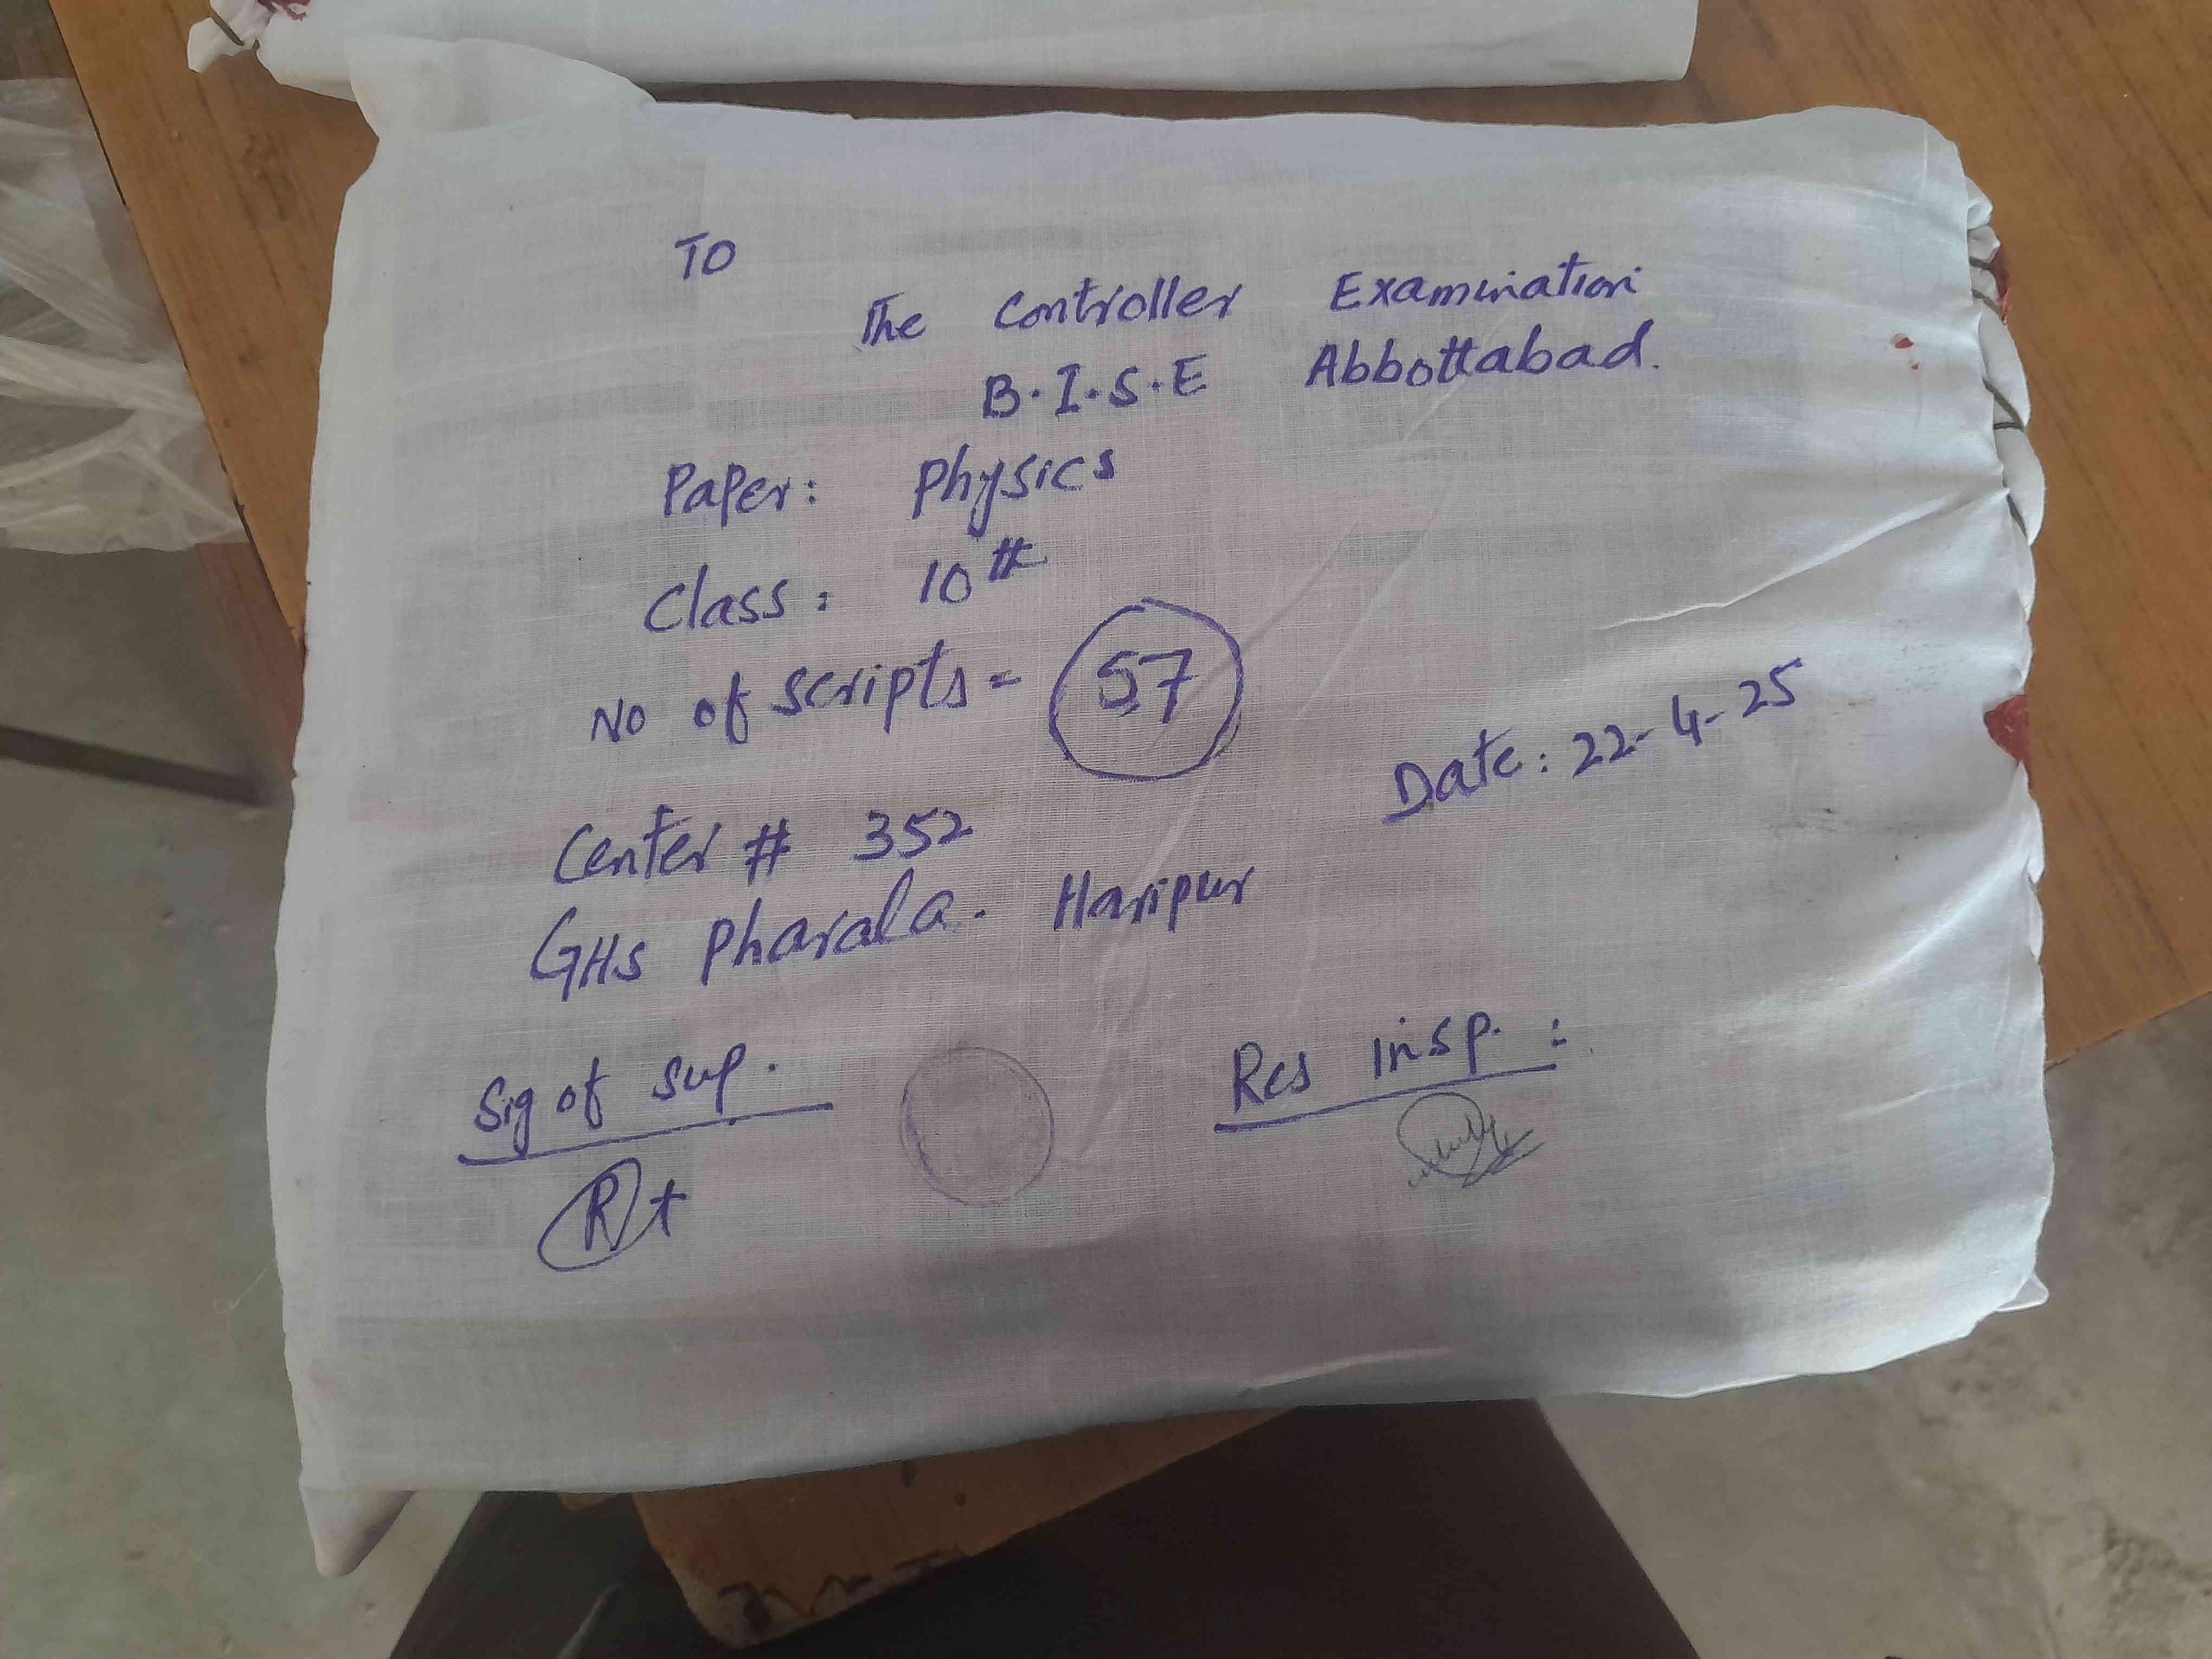 TO
The Controller Examination
B.I.S.E Abbottabad.
Paper: Physics
Class: 10th
No of scripts = 57
Date: 22-4-25
Center # 352
GHS Pharala. Haripur
Sig of Sup.
Res Insp. :